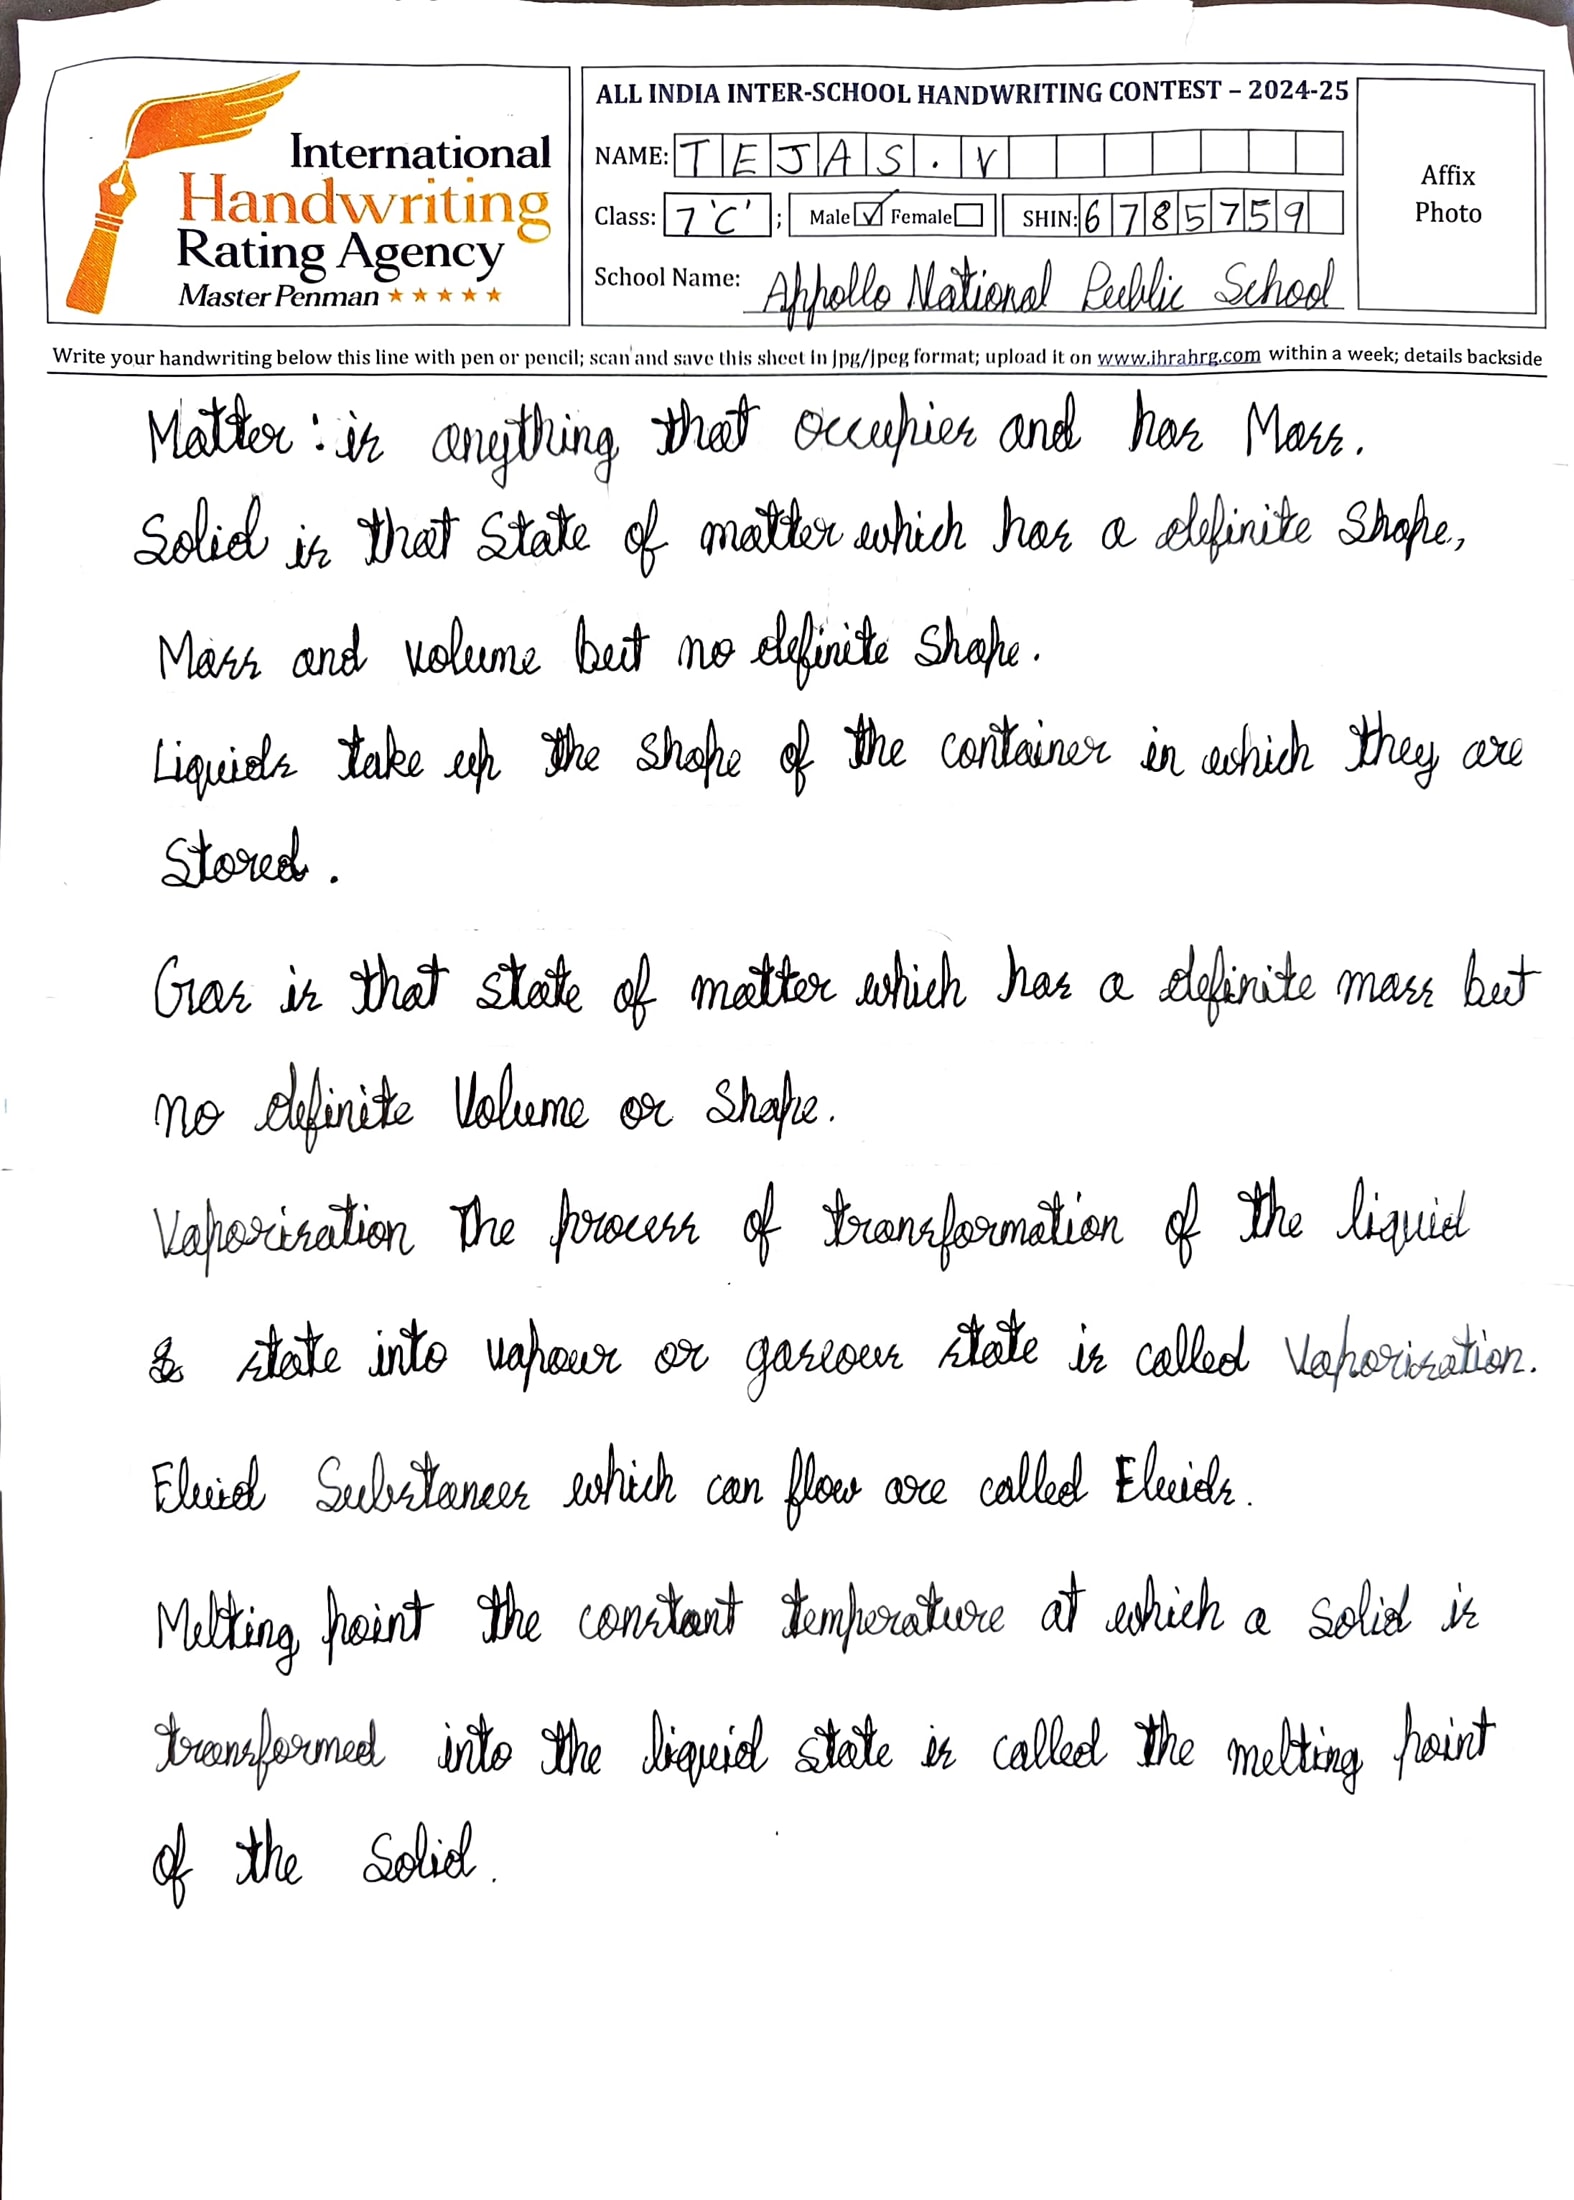 International
Handwriting
Rating Agency
Master Penman ★★★★★
ALL INDIA INTER-SCHOOL HANDWRITING CONTEST – 2024-25
NAME: TEJAS.V
Class: 7 'C' ; Male ☑ Female ☐ SHIN: 6785759
School Name: Appollo National Public School
Affix
Photo
Write your handwriting below this line with pen or pencil; scan and save this sheet in jpg/jpeg format; upload it on www.ihrahrg.com within a week; details backside
Matter : is anything that occupies and has Mass.
Solid is that State of matter which has a definite Shape,
Mass and volume but no definite Shape.
Liquids take up the shape of the container in which they are
Stored.
Gas is that state of matter which has a definite mass but
no definite Volume or Shape.
Vaporisation The process of transformation of the liquid
& state into vapour or gaseous state is called Vaporisation.
Fluid Substances which can flow are called Fluids.
Melting point the constant temperature at which a Solid is
transformed into the liquid state is called the melting point
of the Solid.